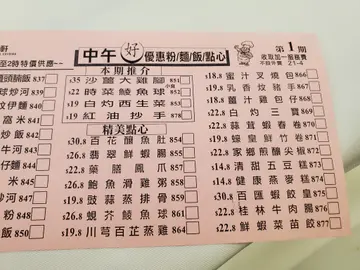 軒
至2時特價供應~~
中午好優惠粉/麵/飯/點心
第1期
收取加一服務費
不設外賣 21-4
本期推介
$35 沙薑大雞腳 851
$22 時菜鯪魚球 852
$19 白灼西生菜 853
$19 紅油抄手 878
精美點心
$30.8 百花釀魚肚 854
$26.8 翡翠鮮蝦腸 855
$22.8 藥膳鳳爪 856
$26.8 鮑魚滑雞粥 858
$19.8 豉蒜蒸排骨 859
$26.8 蜆芥鯪魚球 860
$19.8 川芎百芷蒸雞 864
$18.8 蜜汁叉燒包 866
$19.8 乳香炆豬手 867
$18.8 薑汁雞包仔 868
$22.8 白灼三寶 870
$22.8 蒜茸蝦春卷 871
$22.8 家鄉煎釀尖椒 872
$14.8 清甜五豆糕 873
$14.8 健康燕麥糕 874
$30.8 百匯蝦餃皇 875
$22.8 桂林牛肉腸 876
$22.8 鮮蝦菜苗餃 877
837
球炒河 839
仔炆伊麵 840
窩米 841
炒河 842
843
仔麵 844
米 845
粉 848
飯 850